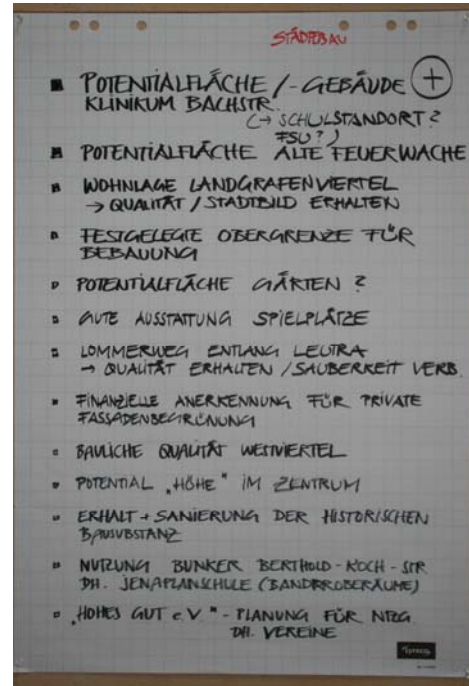 STÄDTEBAU
POTENTIALFLÄCHE / - GEBÄUDE +
KLINIKUM BACHSTR.
(→ SCHULSTANDORT?
FSU?)
POTENTIALFLÄCHE ALTE FEUERWACHE
WOHNLAGE LANDGRAFENVIERTEL
→ QUALITÄT / STADTBILD ERHALTEN
FESTGELEGTE OBERGRENZE FÜR
BEBAUUNG
POTENTIALFLÄCHE GÄRTEN ?
GUTE AUSSTATTUNG SPIELPLÄTZE
LOMMERWEG ENTLANG LEUTRA
→ QUALITÄT ERHALTEN / SAUBERKEIT VERB.
FINANZIELLE ANERKENNUNG FÜR PRIVATE
FASSADENBEGRÜNUNG
BAULICHE QUALITÄT WESTVIERTEL
POTENTIAL „HÖHE" IM ZENTRUM
ERHALT + SANIERUNG DER HISTORISCHEN
BAUSUBSTANZ
NUTZUNG BUNKER BERTHOLD-KOCH-STR
DH. JENAPLANSCHULE (BANDPROBERÄUME)
„HOHES GUT e.V." - PLANUNG FÜR
DH. VEREINE